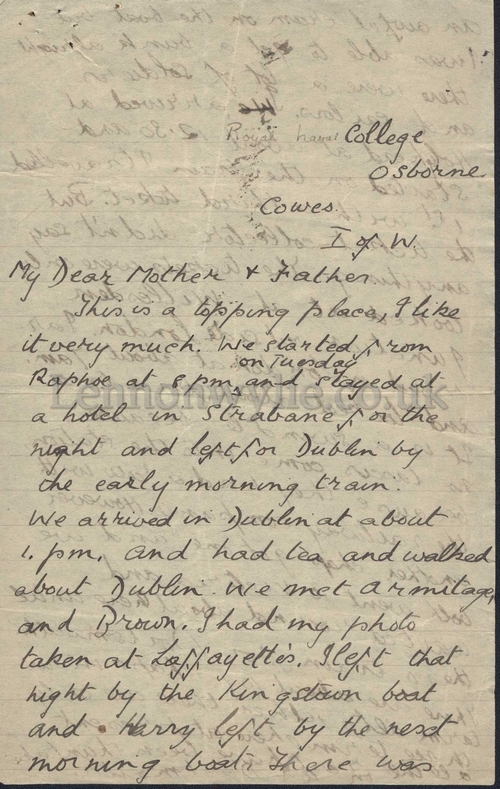 Royal naval College
Osborne
Cowes.
I of W.
My Dear Mother & Father
This is a topping place, I like
it very much. We started from
on Tuesday
Raphoe at 8 pm, and stayed at
a hotel in Strabane for the
night and left for Dublin by
the early morning train.
We arrived in Dublin at about
1. pm. and had tea and walked
about Dublin. We met Armitage,
and Brown. I had my photo
taken at Laffayette's. I left that
night by the Kingstown boat
and Harry left by the next
morning boat. There was
Lennonwylie.co.uk